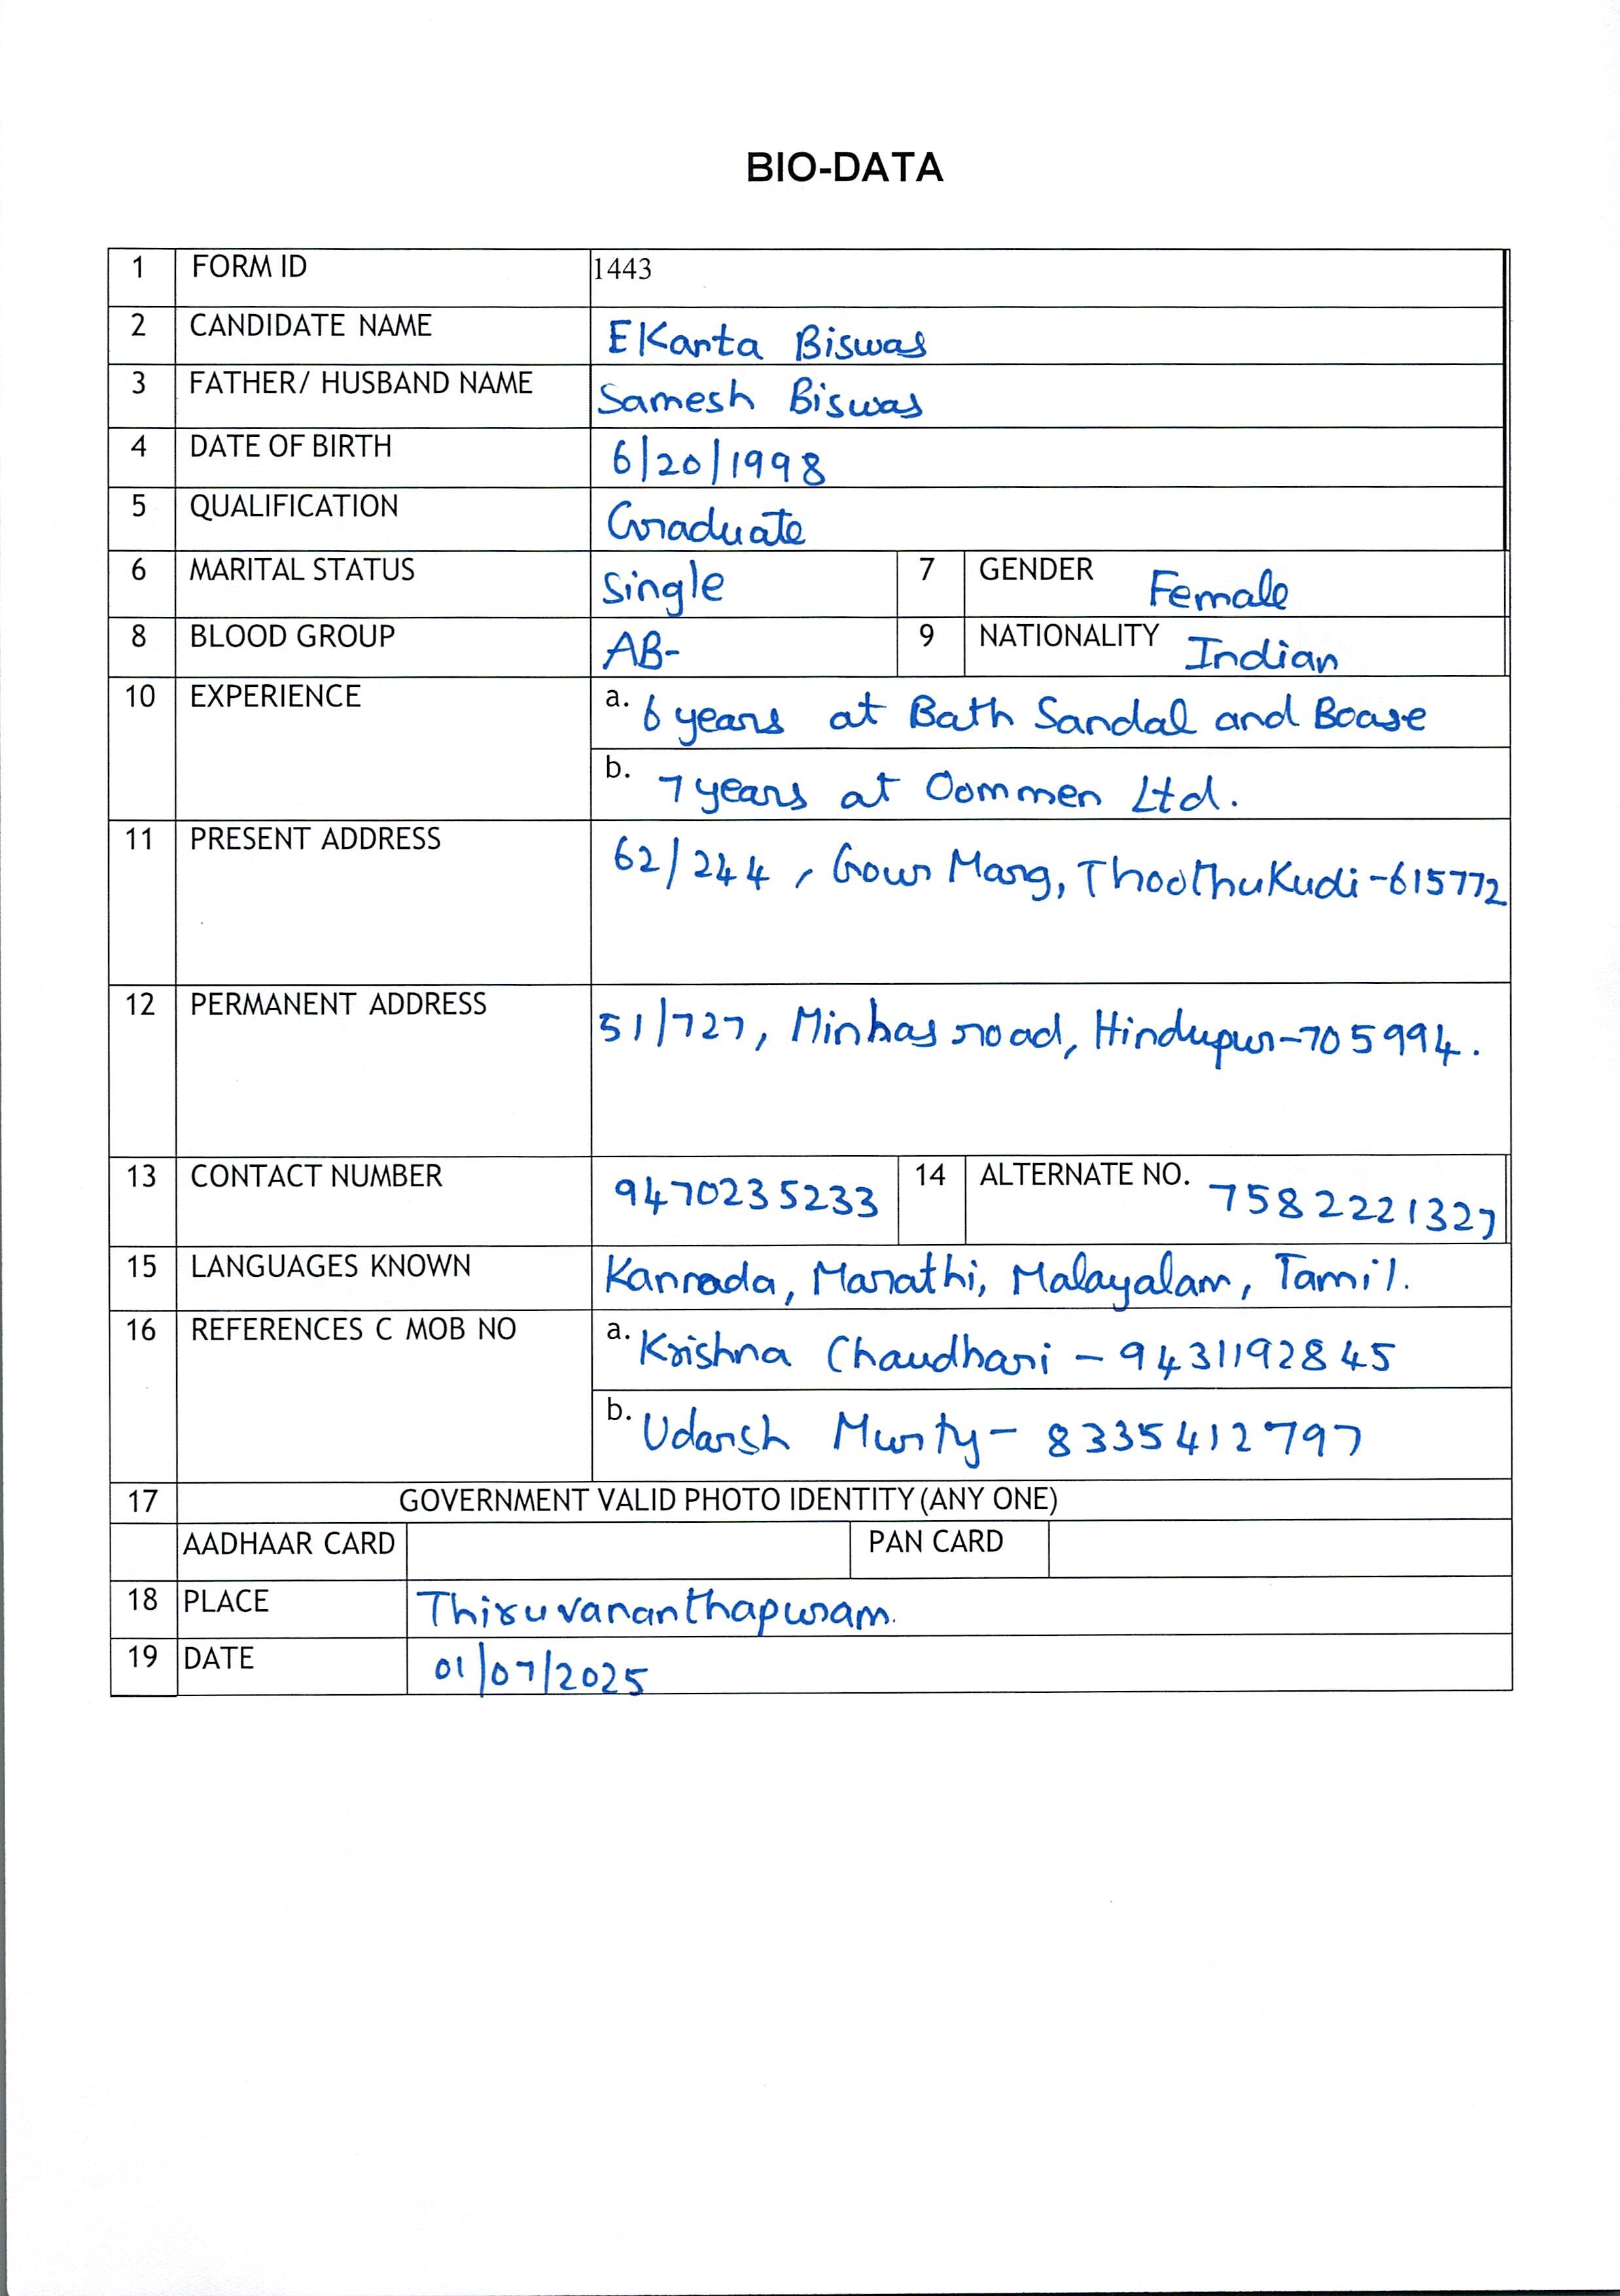 BIO-DATA
1 FORM ID 1443
2 CANDIDATE NAME Ekanta Biswas
3 FATHER/ HUSBAND NAME Samesh Biswas
4 DATE OF BIRTH 6/20/1998
5 QUALIFICATION Graduate
6 MARITAL STATUS Single 7 GENDER Female
8 BLOOD GROUP AB- 9 NATIONALITY Indian
10 EXPERIENCE a. 6 years at Bath Sandal and Boase
b. 7 years at Oommen Ltd.
11 PRESENT ADDRESS 62/244, Gour Marg, Thoothukudi-615772
12 PERMANENT ADDRESS 51/727, Minhas road, Hindupur-705994.
13 CONTACT NUMBER 9470235233 14 ALTERNATE NO. 7582221327
15 LANGUAGES KNOWN Kannada, Marathi, Malayalam, Tamil.
16 REFERENCES C MOB NO a. Krishna Chaudhari - 9431192845
b. Udarsh Murty- 8335412797
17 GOVERNMENT VALID PHOTO IDENTITY (ANY ONE)
AADHAAR CARD PAN CARD
18 PLACE Thiruvananthapuram.
19 DATE 01/07/2025